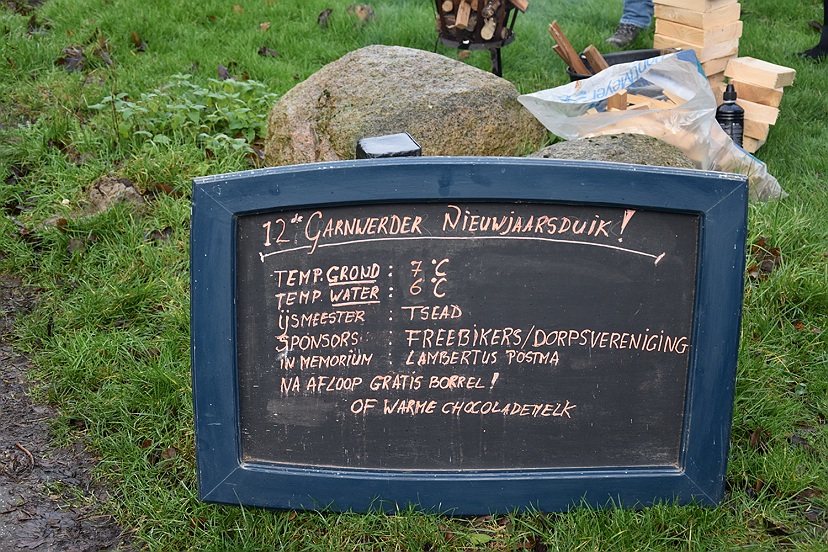 12de GARNWERDER NIEUWJAARSDUIK!
TEMP. GROND : 7 °C
TEMP. WATER : 6 °C
IJSMEESTER : TSEAD
SPONSORS : FREEBIKERS/DORPSVERENIGING
IN MEMORIUM : LAMBERTUS POSTMA
NA AFLOOP GRATIS BORREL!
OF WARME CHOCOLADEMELK